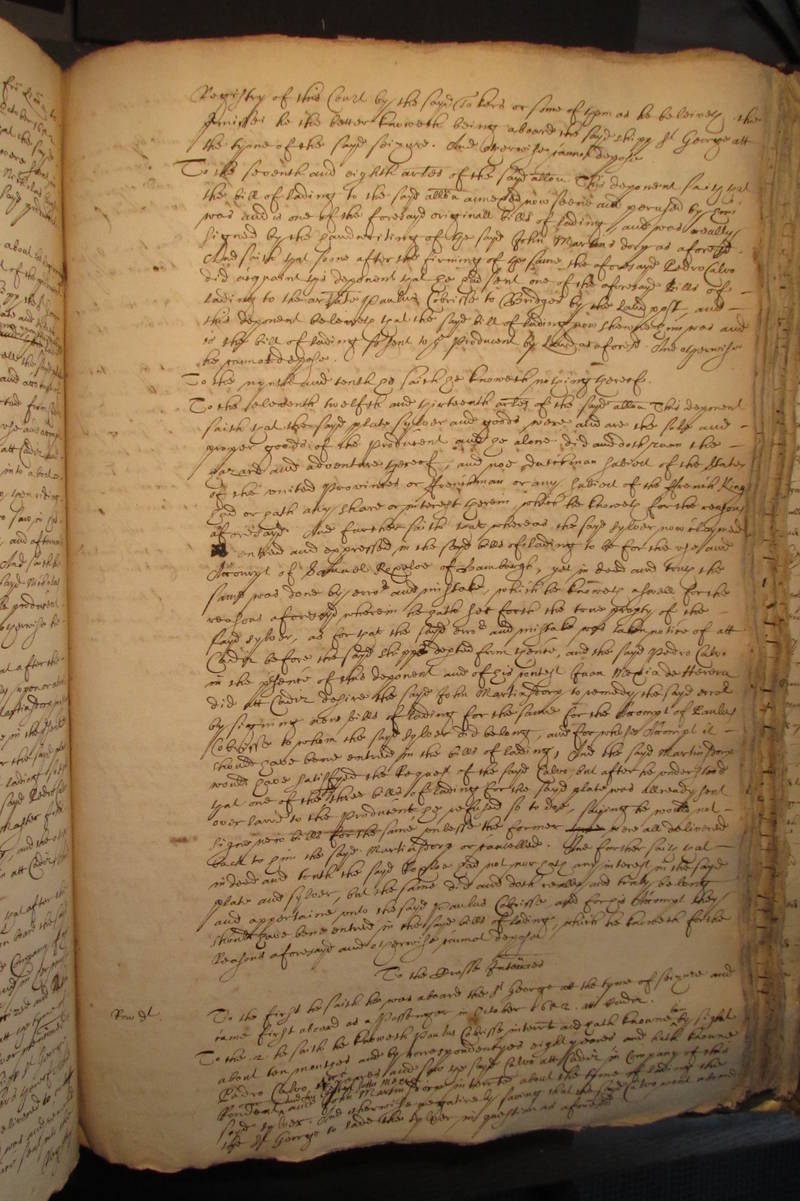 Registry of this Court by the sayd Takers or some of them as he beleeveth, the
premisses he the better knoweth being aboard the sayd shipp St George att
the tyme of the sayd seizure. And otherwise cannot depose
To the seventh and eighth arles of the sayd allon This deponent saith that
the bill of lading to the sayd allon annexed now seene and perused by him
was and is one of the foresayd originall bills of lading, and was really
signed by the handwriting of the sayd John Martins dorp as aforesd.
And saith that soone after the firming of the same the aforesayd Pedro Calvo
did acquaint this deponent that he had sent one of the aforesayd bills of
lading to the arlate Paulus Cobrisse to Bridges by the land post, and
this deponent beleeveth that the sayd bill of lading now shewed him was and
is the bill of lading so sent to the Producent by land as aforesd. And otherwise
he cannot depose.
To the nynth and tenth he saith he knoweth nothing thereof.
To the eleventh twelfth and thirteenth arles of the sayd allon This deponent
saith that the sayd plate sylver and goods were and are the sole and
proper goods of the Producent and he alone did and doth runn the
hazard and adventure thereof, and noe dutchman subiect of the States
of the united Provinces or frenchman or any subiect of the french King
had or hath any share or interest therein which he knoweth for the reasons
aforesayd. And further saith that whereas the sayd sylver now claymed
entred and expressed in the sayd bills of lading to be for the use and
Accompt of Samuel of Hamburgh, yet in deed and truth the
same was done by error and mistake, which he knoweth aswell for the
reasons aforesayd wherein he hath set forth the true propty of the
sayd sylver, as for that the sayd error and mistake was taken notice of att
Cadiz before the sayd shipps depted from thence, and the sayd Pedro Calvo
in the psence of this deponent and of his contest Juan de Herrera
did att Cadiz desire the sayd John Martinsdorp to remedy the sayd error
by signing new bills of lading for the same for the Accompt of Paulus
Cobrisse to whom the sayd sylver did belong, and for whose Accompt it
should have beene entred in the bills of lading, And the sayd Martinsdorp
would have satisfyed the Request of the sayd Calvo, but after he understood
that one of the three bills of lading for the sayd plate was already sent
over land to the Producent he refused so to doe, saying he would not
signe new bills for the same unlesse the former were all delivered
back to him the sayd Martinsdorp or cancelled. And further saith that
in deed and truth the sayd had not nor hath any interest in the sayd
plate and sylver, but the same did and doth really and truly belong
and appertaine unto the sayd Paulus Cobrisse, and for his Accompt they
should have bene entred in the sayd bills of lading, which he knoweth for the
Reasons aforesayd and otherwise cannot depose
To the Crosse Interries
To the first he saith he was aboard the St George at the tyme of seizure and
came first aboard as a Passenger in October 1652. att Cadiz.
To the 2 he saith he knoweth Paulus Cobrisse interrate and hath knowne him by sight
about ten monthes and by correspondency eight yeares and hath knowne
Pedro Calvo yeares and saw the sayd Calvo att Cadiz in company of this
Rondent and John Martinsdorp interrate about the tyme of lading the
sayd sylver, And otherwise negatively saving that the sayd Calvo went aboard
the St George to lade the sylver in question as aforesd